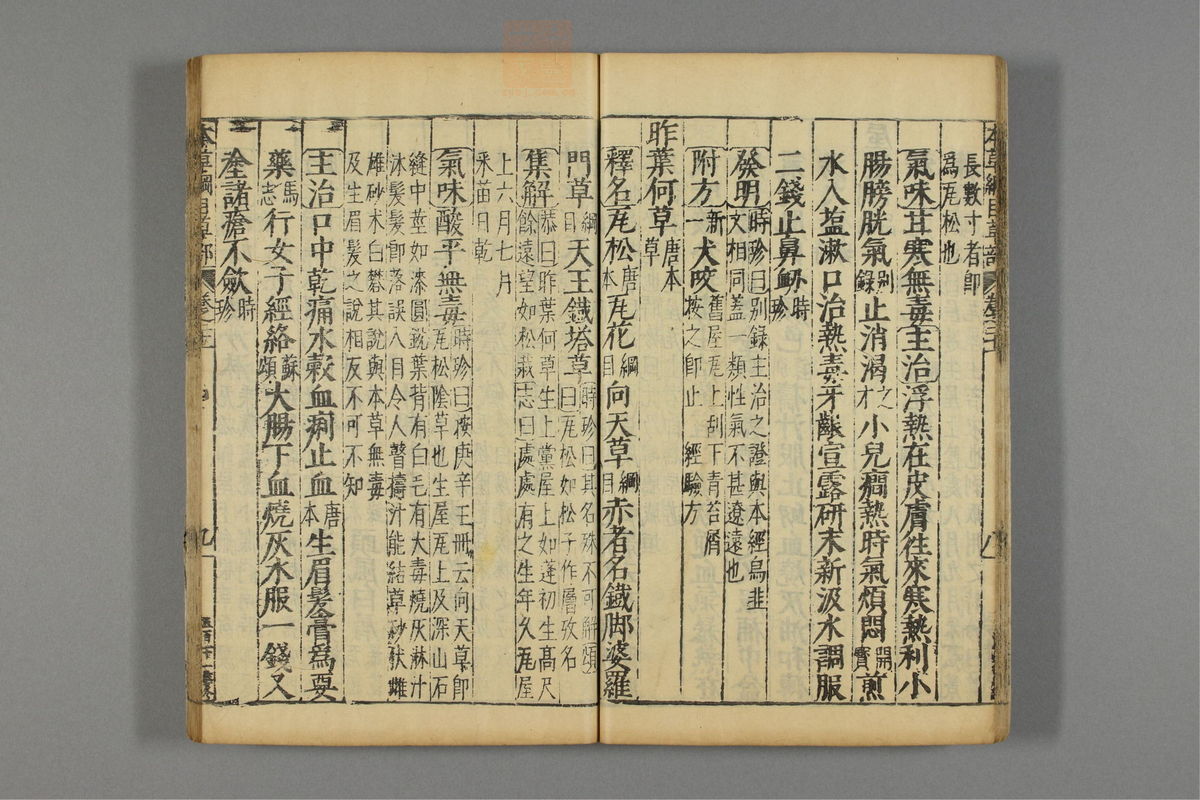 長數寸者即
爲瓦松也
氣味甘寒無毒主治浮熱在皮膚往來寒熱利小
腸膀胱氣別錄止消渴之才小兒癇熱時氣煩悶開寶煎
水入塩漱口治熱毒牙齦宣露研末新汲水調服
二錢止鼻衂時珍
發明時珍曰别錄主治之證與本經烏韭
文相同蓋一類性氣不甚遼遠也
附方新一犬咬舊屋瓦上刮下青苔屑
按之即止 經驗方
昨葉何草唐本草
釋名瓦松唐本瓦花綱目向天草綱目赤者名鐵脚婆羅
門草綱目天王鐵塔草時珍曰其名殊不可解頌
曰瓦松如松子作層故名
集解恭曰昨葉何草生上黨屋上如蓬初生高尺
餘遠望如松栽志曰處處有之生年久瓦屋
上六月七月
釆苗日乾
氣味酸平無毒時珍曰按庚辛玉冊云向天草即
瓦松陰草也生屋瓦上及深山石
縫中莖如漆圓銳葉背有白毛有大毒燒灰淋汁
沐髮髮卽落誤入目令人瞽擣汁能結草砂伏雌
雄砂汞白礬其說與本草無毒
及生眉髮之說相反不可不知
主治口中乾痛水穀血痢止血唐本生眉髮膏爲要
藥馬志行女子經絡蘇頌大腸下血燒灰水服一錢又
𡍼諸瘡不斂時珍